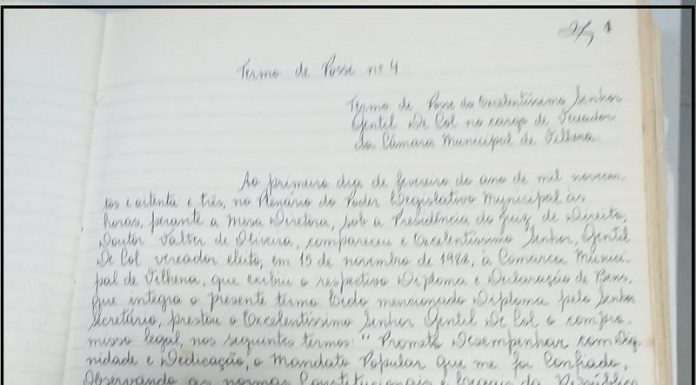 4
Termo de Posse nº 4
Termo de Posse do Excelentíssimo Senhor
Gentil De Col no cargo de Vereador
da Câmara Municipal de Vilhena.
Ao primeiro dia de fevereiro do ano de mil novecen-
tos e oitenta e três, no Plenário do Poder Legislativo Municipal às
horas, perante a Mesa Diretora, sob a Presidência do Juiz de Direito,
Doutor Valter de Oliveira, compareceu o Excelentíssimo Senhor, Gentil
De Col vereador eleito, em 15 de novembro de 1982, à Câmara Munici-
pal de Vilhena, que exibiu o respectivo Diploma e Declaração de Bens,
que integra o presente termo. Lido mencionado Diploma pelo Senhor
Secretário, prestou o Excelentíssimo Senhor Gentil De Col o compro-
misso legal, nos seguintes termos: " Prometo Desempenhar com Dig-
nidade e Dedicação, o Mandato Popular que me foi Confiado,
Observando as normas Constitucionais e